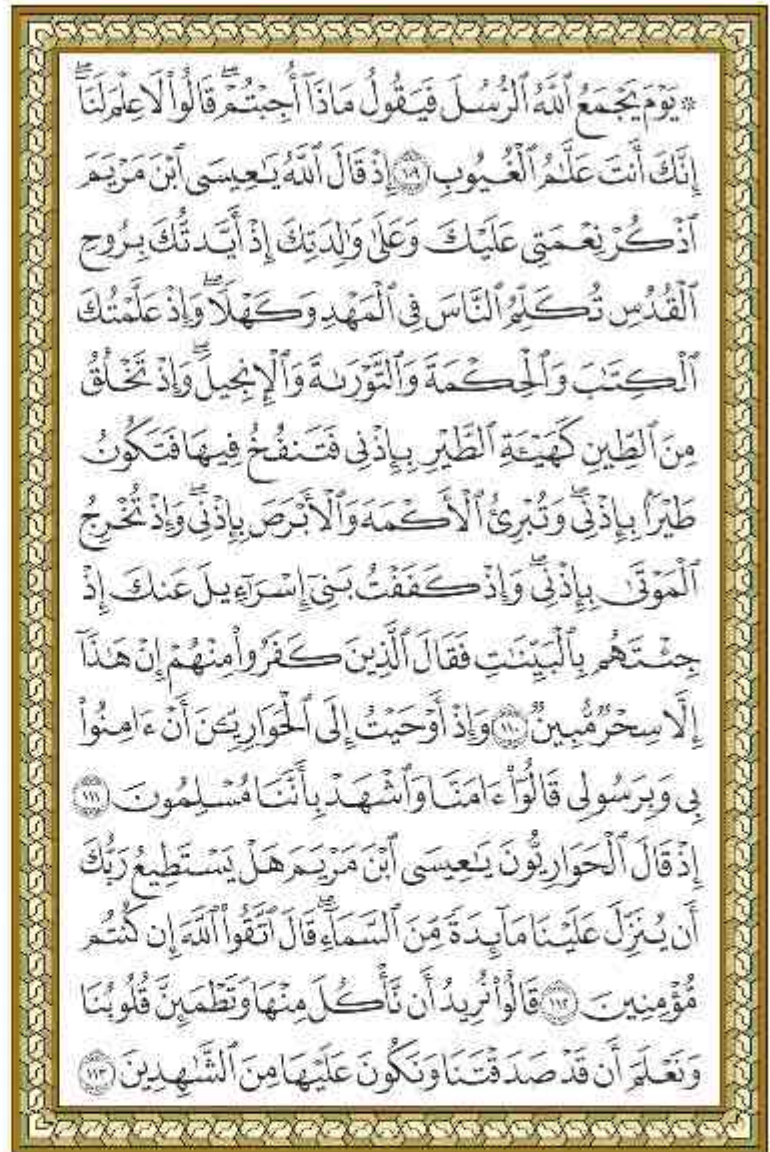 ۞ يَوْمَ يَجْمَعُ ٱللَّهُ ٱلرُّسُلَ فَيَقُولُ مَاذَآ أُجِبْتُمْۖ قَالُوا۟ لَا عِلْمَ لَنَآۖ
إِنَّكَ أَنتَ عَلَّٰمُ ٱلْغُيُوبِ ١٠٩ إِذْ قَالَ ٱللَّهُ يَٰعِيسَى ٱبْنَ مَرْيَمَ
ٱذْكُرْ نِعْمَتِى عَلَيْكَ وَعَلَىٰ وَٰلِدَتِكَ إِذْ أَيَّدتُّكَ بِرُوحِ
ٱلْقُدُسِ تُكَلِّمُ ٱلنَّاسَ فِى ٱلْمَهْدِ وَكَهْلًاۖ وَإِذْ عَلَّمْتُكَ
ٱلْكِتَٰبَ وَٱلْحِكْمَةَ وَٱلتَّوْرَىٰةَ وَٱلْإِنجِيلَۖ وَإِذْ تَخْلُقُ
مِنَ ٱلطِّينِ كَهَيْـَٔةِ ٱلطَّيْرِ بِإِذْنِى فَتَنفُخُ فِيهَا فَتَكُونُ
طَيْرًۢا بِإِذْنِىۖ وَتُبْرِئُ ٱلْأَكْمَهَ وَٱلْأَبْرَصَ بِإِذْنِىۖ وَإِذْ تُخْرِجُ
ٱلْمَوْتَىٰ بِإِذْنِىۖ وَإِذْ كَفَفْتُ بَنِىٓ إِسْرَٰٓءِيلَ عَنكَ إِذْ
جِئْتَهُم بِٱلْبَيِّنَٰتِ فَقَالَ ٱلَّذِينَ كَفَرُوا۟ مِنْهُمْ إِنْ هَٰذَآ
إِلَّا سِحْرٌ مُّبِينٌ ١١٠ وَإِذْ أَوْحَيْتُ إِلَى ٱلْحَوَارِيِّـۧنَ أَنْ ءَامِنُوا۟
بِى وَبِرَسُولِى قَالُوٓا۟ ءَامَنَّا وَٱشْهَدْ بِأَنَّنَا مُسْلِمُونَ ١١١
إِذْ قَالَ ٱلْحَوَارِيُّونَ يَٰعِيسَى ٱبْنَ مَرْيَمَ هَلْ يَسْتَطِيعُ رَبُّكَ
أَن يُنَزِّلَ عَلَيْنَا مَآئِدَةً مِّنَ ٱلسَّمَآءِۖ قَالَ ٱتَّقُوا۟ ٱللَّهَ إِن كُنتُم
مُّؤْمِنِينَ ١١٢ قَالُوا۟ نُرِيدُ أَن نَّأْكُلَ مِنْهَا وَتَطْمَئِنَّ قُلُوبُنَا
وَنَعْلَمَ أَن قَدْ صَدَقْتَنَا وَنَكُونَ عَلَيْهَا مِنَ ٱلشَّٰهِدِينَ ١١٣